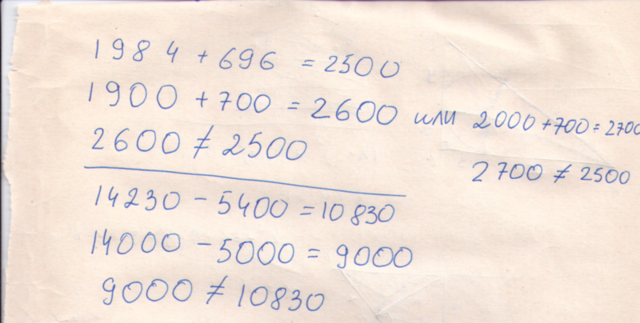 1984 + 696 = 2500
1900 + 700 = 2600 или 2000 + 700 = 2700
2600 ≠ 2500
2700 ≠ 2500
14230 - 5400 = 10830
14000 - 5000 = 9000
9000 ≠ 10830